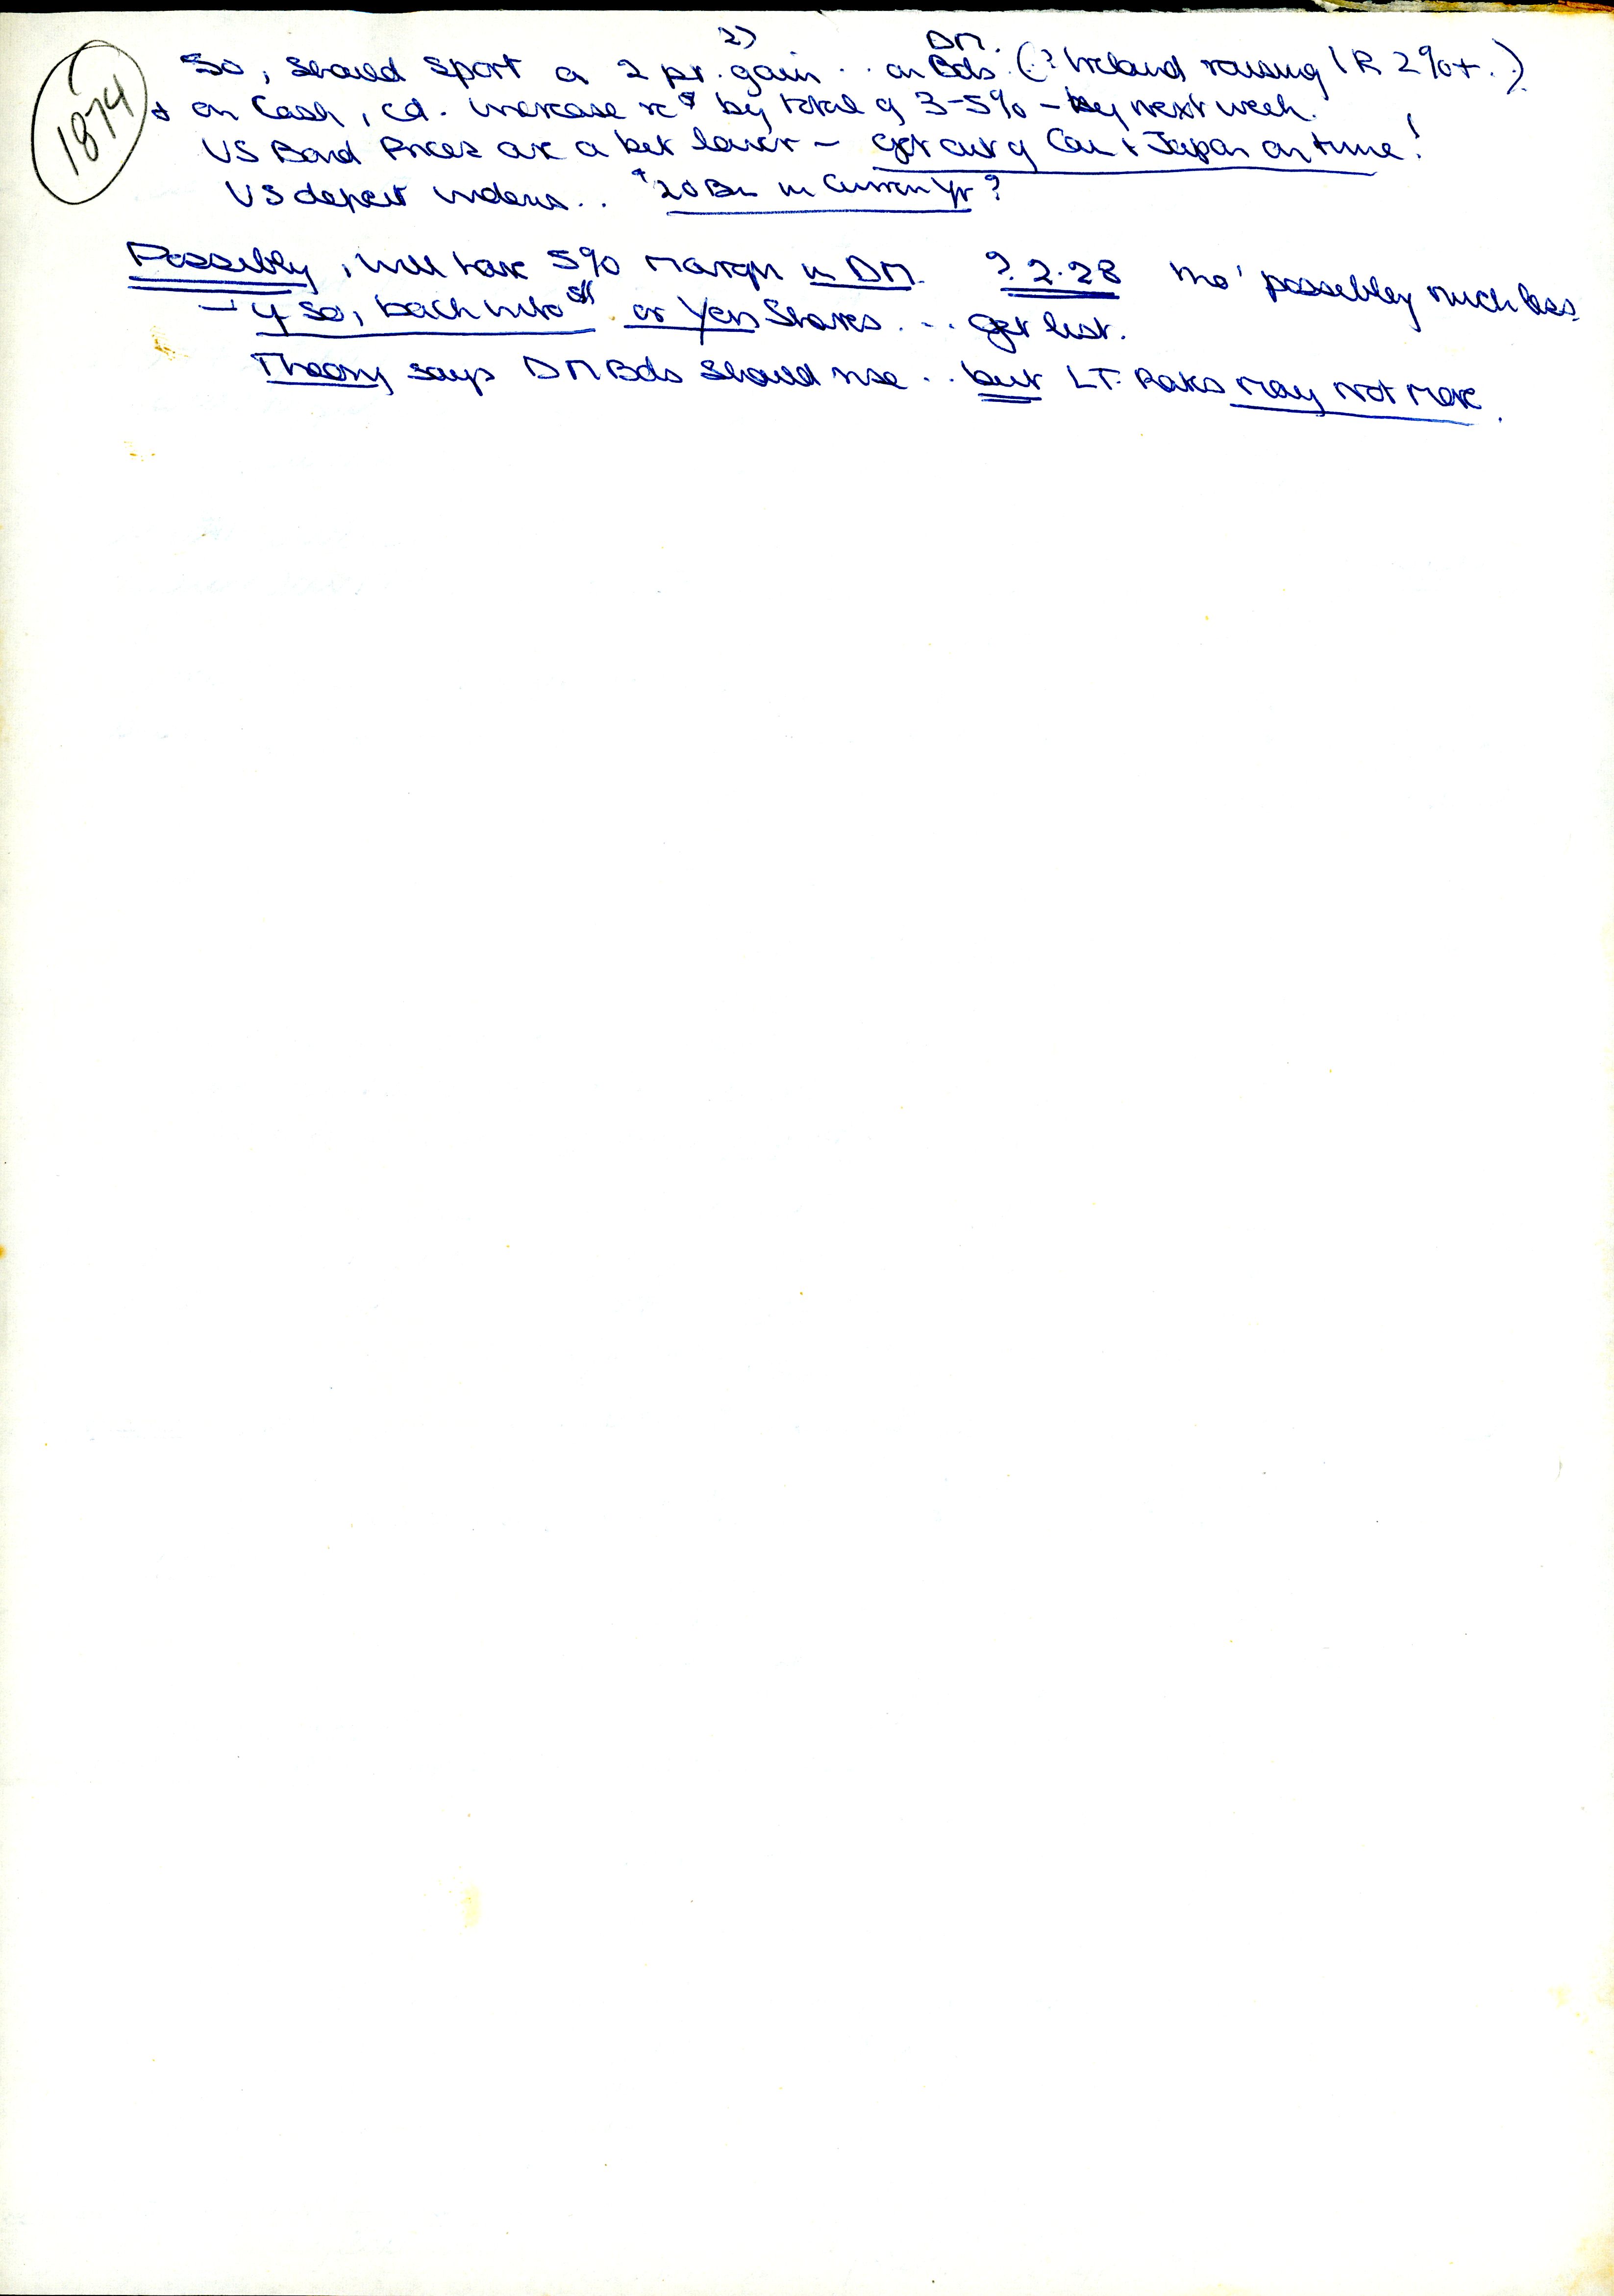 2)
1874
So, should sport a 2 pr. gain .. on DM. Bds. (? Ireland raising IR 2%+.)
+ on Cash, cd. increase by total of 3-5% - by next week.
US Bond Prices are a bit lower - get out of Can + Japan on time!
US deficit widens.. $20 Bn in Curren Yr?
Possibly, will take 5% margin in DM. ? 2.28 tho' possibley much less.
- If so, back into or Yen Shares ... get list.
Theory says DM Bds should rise .. but LT. Rates may not move.